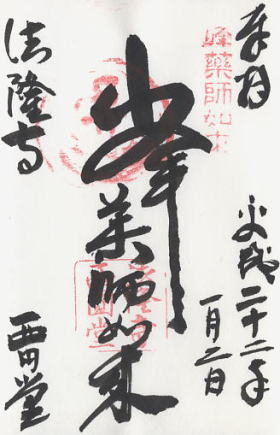 奉拝
峰薬師如来
平成二十二年
一月二日
峯薬師如来
法隆寺
西円堂